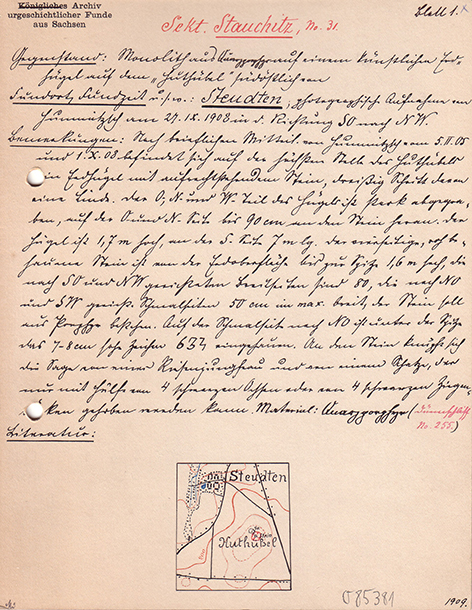 Königliches Archiv
urgeschichtlicher Funde
aus Sachsen
Blatt 1.
Sekt. Stauchitz, No. 31.
Gegenstand: Monolith aus Quarzporphyr auf einem künstlichen Erd-
hügel auf dem „Huthübel" südöstlich von
Fundort, Fundzeit u.s.w.: Steudten, photographische Aufnahme von
am 27. IX. 1908 in d. Richtung SO nach NW.
Bemerkungen: Nach brieflichen Mitteil. von vom 5. II. 08
und 1. X. 08 befindet sich auf der höchsten Stelle des Huthübels
ein Erdhügel mit aufrechtstehendem Stein, dreißig Schritt davon
eine Linde. Der O, N. und W. Teil des Hügels ist stark abgegra-
ben, auf der O und N. Seite bis 90 cm an den Stein heran. Der
Hügel ist 1,7 m hoch, an der S. Seite 7 m lg. Der vierseitige, roh be-
hauene Stein ist von der Erdoberfläche bis zur Spitze 1,6 m hoch, die
nach SO und NW gerichteten Breitseiten sind 80, die nach NO
und SW gericht. Schmalseiten 50 cm im max. breit, der Stein soll
aus Porphyr bestehen. Auf der Schmalseite nach NO ist unter der Spitze
das 7-8 cm hohe Zeichen eingehauen. An den Stein knüpft sich
die Sage von einer Riesenjungfrau und von einem Schatze, der
nur mit Hülfe von 4 schwarzen Ochsen oder von 4 schwarzen Ziegen-
böcken gehoben werden kann. Material: Quarzporphyr (Dünnschliff
No. 255.)
Literatur:
Steudten
Huthübel
85381
1909.